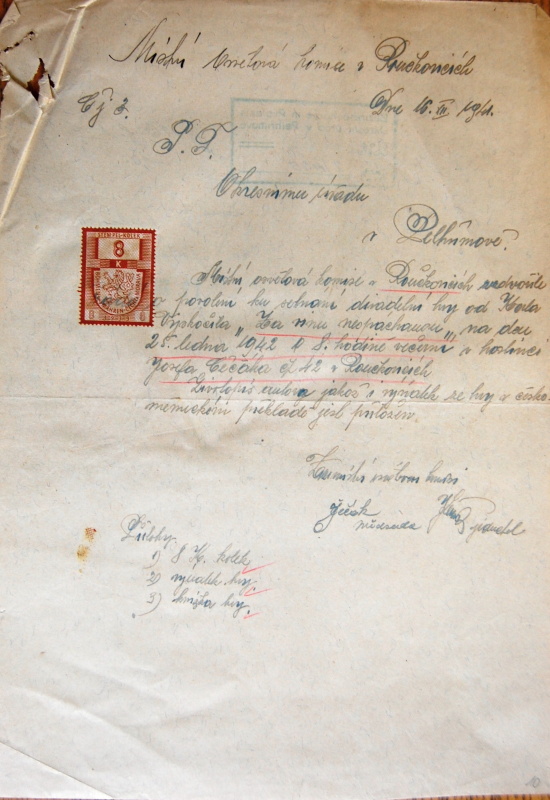 Místní osvětová komise v Proučkovicích
Čj 3.
Dne 16. XII. 1941.
P. T.
Okresnímu úřadu
v Pelhřimově.
STEMPEL-KOLEK
8
K
8 8
Místní osvětová komise v Proučkovicích
o povolení ku sehrání divadelní hry od Karla
"Za vinu nespáchanou", na den
25. ledna 1942 o 8. hodině večerní v hostinci
Josefa Čečáka čp 42 v Proučkovicích
Životopis autora jakož i výňatek ze hry v česko
německém překladě jest přiložen.
Za místní osvětovou komisi
předseda jednatel
Přílohy
1) 8 K. kolek
2) výňatek hry.
3) knížka hry.